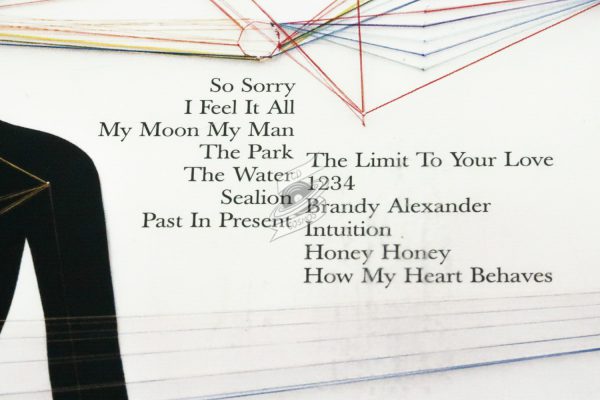 So Sorry
I Feel It All
My Moon My Man
The Park
The Water
Sealion
Past In Present
The Limit To Your Love
1234
Brandy Alexander
Intuition
Honey Honey
How My Heart Behaves